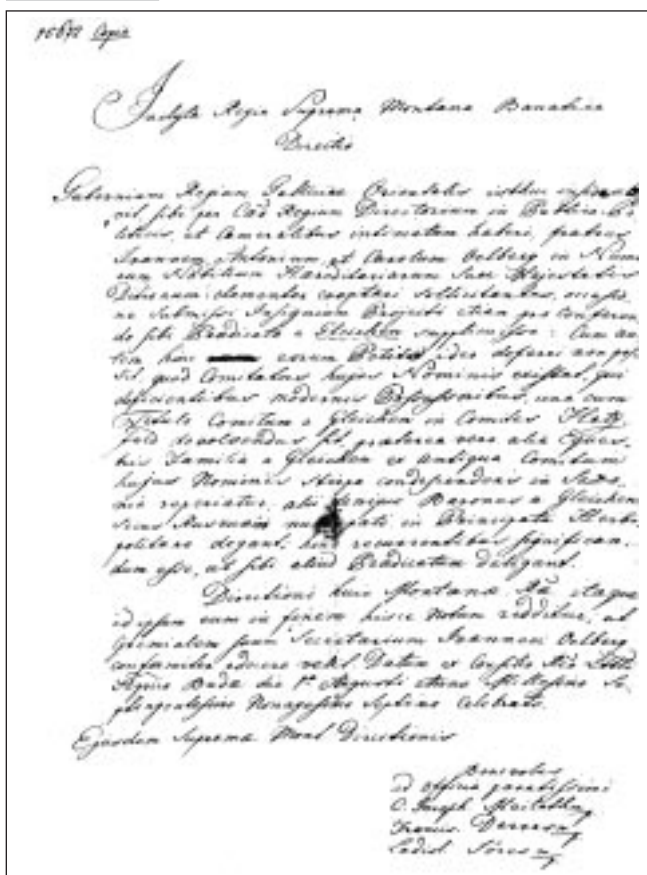 Copia
Inclyta Regia Suprema Montana Banatica
Directio
Gubernium Regium Galliciae Orientalis isthuc
vit, sibi per Regium Directorium in Publico-Po
liticis, et Cameralibus intimatum haberi, fratres
Joannem Antonium, et Carolum Oelberg in Nume
rum Nobilium Haereditariorum Suae Majestatis
clementer cooptari sollicitantes, occasio
ne submissi Insignium Projecti etiam pro conferen
do sibi Praedicato a Gleichen supplicasse: Cum au
tem huic eorum Petito ideo deferri non pos
sit, quod Comitatus hujus Nominis existat, qui
deficientibus modernis Possessoribus, una cum
Titulo Comitum a Gleichen in Comites Hatz
feld devolvendus sit, praeterea vero alia Eques
tris Familia a Gleichen ex antiqua Comitum
hujus Nominis Stirpe condependens in Saxo
nia reperiatur, alii denique Barones a Gleichen
seu Rusworm nuncupati in Principatu Herbi
politano degant, hinc recurrentibus significan
dum esse, ut sibi aliud Praedicatum deligant.
Directioni huic Montanae itaque
id ipsum eum in finem hisce notum redditur, ut
Gremialem suum Secretarium Joannem Oelberg
conformiter edocere velit. Datum ex Consilio
Regio Budae die 1a Augusti Anno Millesimo Se
ptingentesimo Nonagesimo Septimo Celebrato.
Ejusdem Supremae Mont Directionis
Benevoli
ad officia paratissimi
C. Joseph
Ladisl.